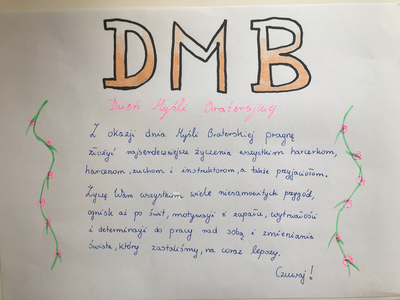 DMB
Dzień Myśli Braterskiej
Z okazji dnia Myśli Braterskiej pragnę
złożyć najserdeczniejsze życzenia wszystkim harcerkom,
harcerzom, zuchom i instruktorom, a także przyjaciołom.
Życzę Wam wszystkim wiele niesamowitych przygód,
ognisk aż po świt, motywacji i zapału, wytrwałości
i determinacji do pracy nad sobą i zmieniania
świata, który zastaliśmy, na coraz lepszy.
Czuwaj!